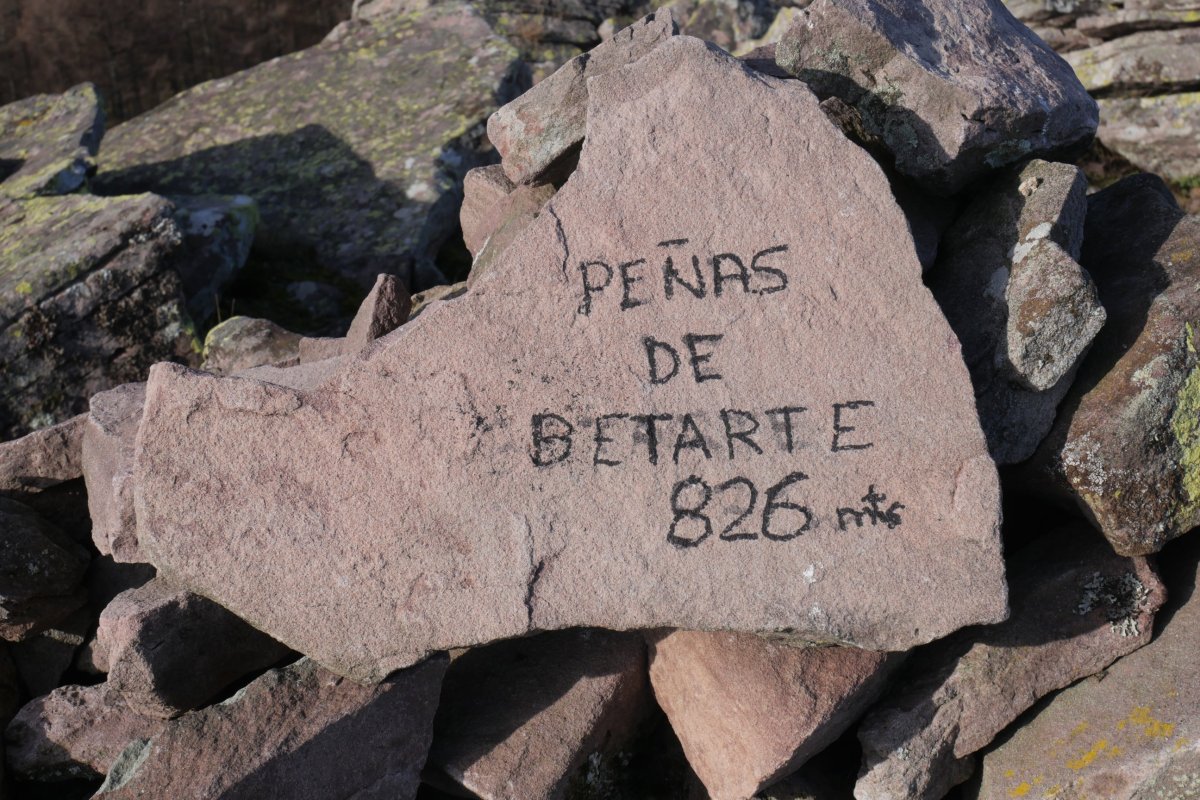 PEÑAS
DE
BETARTE
826 mts